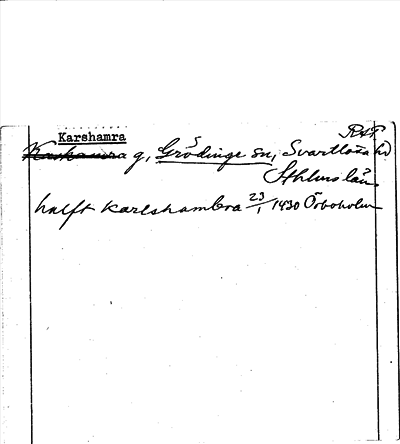 Karshamra
RAP
Karshamra g, Grödinge sn, Svartlösa hd
Sthlms län
halft karlshambra 23/1 1430 Örboholm